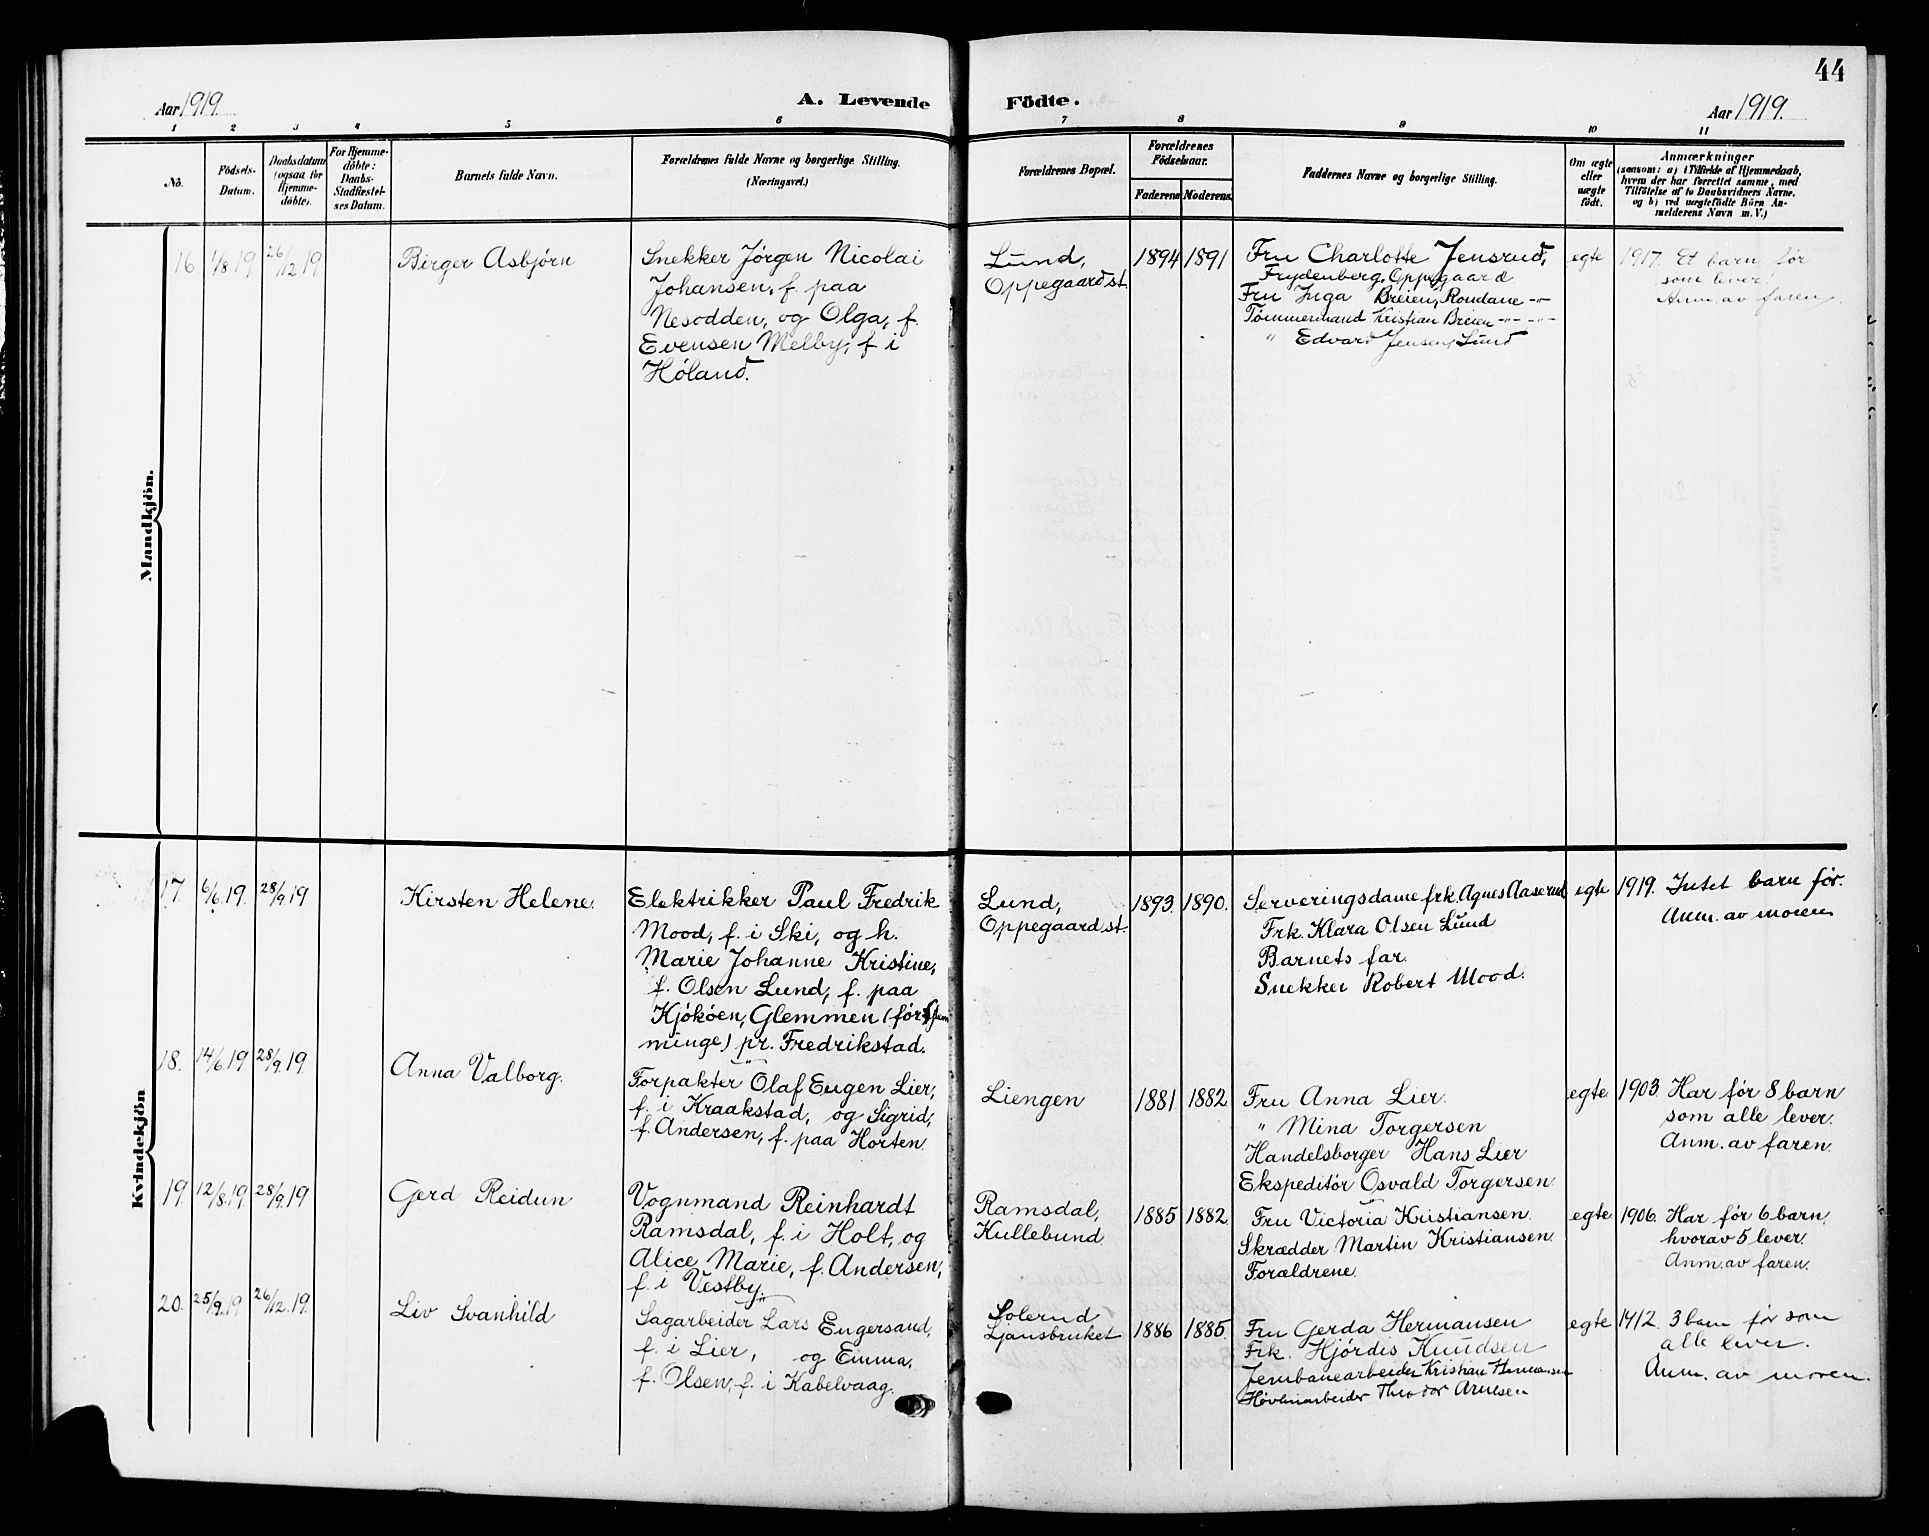 44
Aar 1919. A. Levende Födte. Aar 1919.
1 2 3 4 5 6 7 8 9 10 11
No.
Födsels-
Datum.
Daabsdatum
(ogsaa for
Hjemme-
döbte).
For Hjemme-
döbte:
Daabs-
Stadfæstel-
ses Datum.
Barnets fulde Navn.
Forældrenes fulde Navne og borgerlige Stilling.
(Næringsvei.)
Forældrenes Bopæl.
Forældrenes
Födselsaar.
Faderens Moderens
Faddernes Navne og borgerlige Stilling.
Om ægte
eller
uægte
födt.
Anmærkninger
(saasom: a) i Tilfælde af Hjemmedaab,
hvem der har forrettet samme, med
Tilföielse af to Daabsvidners Navne,
og b) ved uægtefödte Börn An-
melderens Navn m. V.)
Mandkjön.
16. 1/8 19 26/12 19
Birger Asbjørn
Snekker Jörgen Nicolai
Johansen, f. paa
Nesodden, og Olga, f.
Evensen Melby, f i
Höland.
Lund,
Oppegaard st.
1894 1891
Fru Charlotte Jensrud,
Frydenberg, Oppegaard
Fru Inga Breien, Rondane -"-
Tömmermand Kristian Breien -"- -"-
" Edvard Jensen, Lund
egte
1917. Et barn før
som lever.
Anm. av faren.
Kvindekjön
17. 6/6. 19. 28/9 19
Kirsten Helene.
Elektrikker Paul Fredrik
Mood, f. i Ski, og h.
Marie Johanne Kristine,
f. Olsen Lund, f. paa
Kjököen, Glemmen (før
minge) pr. Fredrikstad.
Lund,
Oppegaard st.
1893. 1890.
Serveringsdame frk. Agnes Aaserud
Frk. Klara Olsen Lund
Barnets far.
Snekker Robert Mood.
egte
1919. Intet barn før.
Anm. av moren
18. 14/6 19 28/9. 19.
Anna Valborg.
Forpakter Olaf Eugen Lier,
f. i Kraakstad, og Sigrid,
f. Andersen, f. paa Horten
Liengen
1881 1882
Fru Anna Lier.
" Mina Torgersen
Handelsborger Hans Lier
Ekspeditör Osvald Torgersen
egte
1903. Har før 8 barn
som alle lever.
Anm. av faren.
19. 12/8. 19. 28/9. 19
Gerd Reidun
Vognmand Reinhardt
Ramsdal, f. i Holt, og
Alice Marie, f. Andersen,
f. i Vestby.
Ramsdal,
Kullebund.
1885 1882.
Fru Victoria Kristiansen.
Skrædder Martin Kristiansen
Forældrene.
egte
1906. Har før 6 barn,
hvorav 5 lever.
Anm. av faren.
20. 25/9. 19 26/12. 19.
Liv Svanhild
Sagarbeider Lars Engersand,
f. i Lier, og Emma,
f. Olsen, f. i Kabelvaag.
Solerud
Ljansbruket
1886 1885.
Fru Gerda Hermansen
Frk. Hjördis Knudsen
Jernbanearbeider Kristian Hermansen
Høvleriarbeider Theodor Arnesen
egte
1412. 3 barn før som
alle lever.
Anm. av moren.